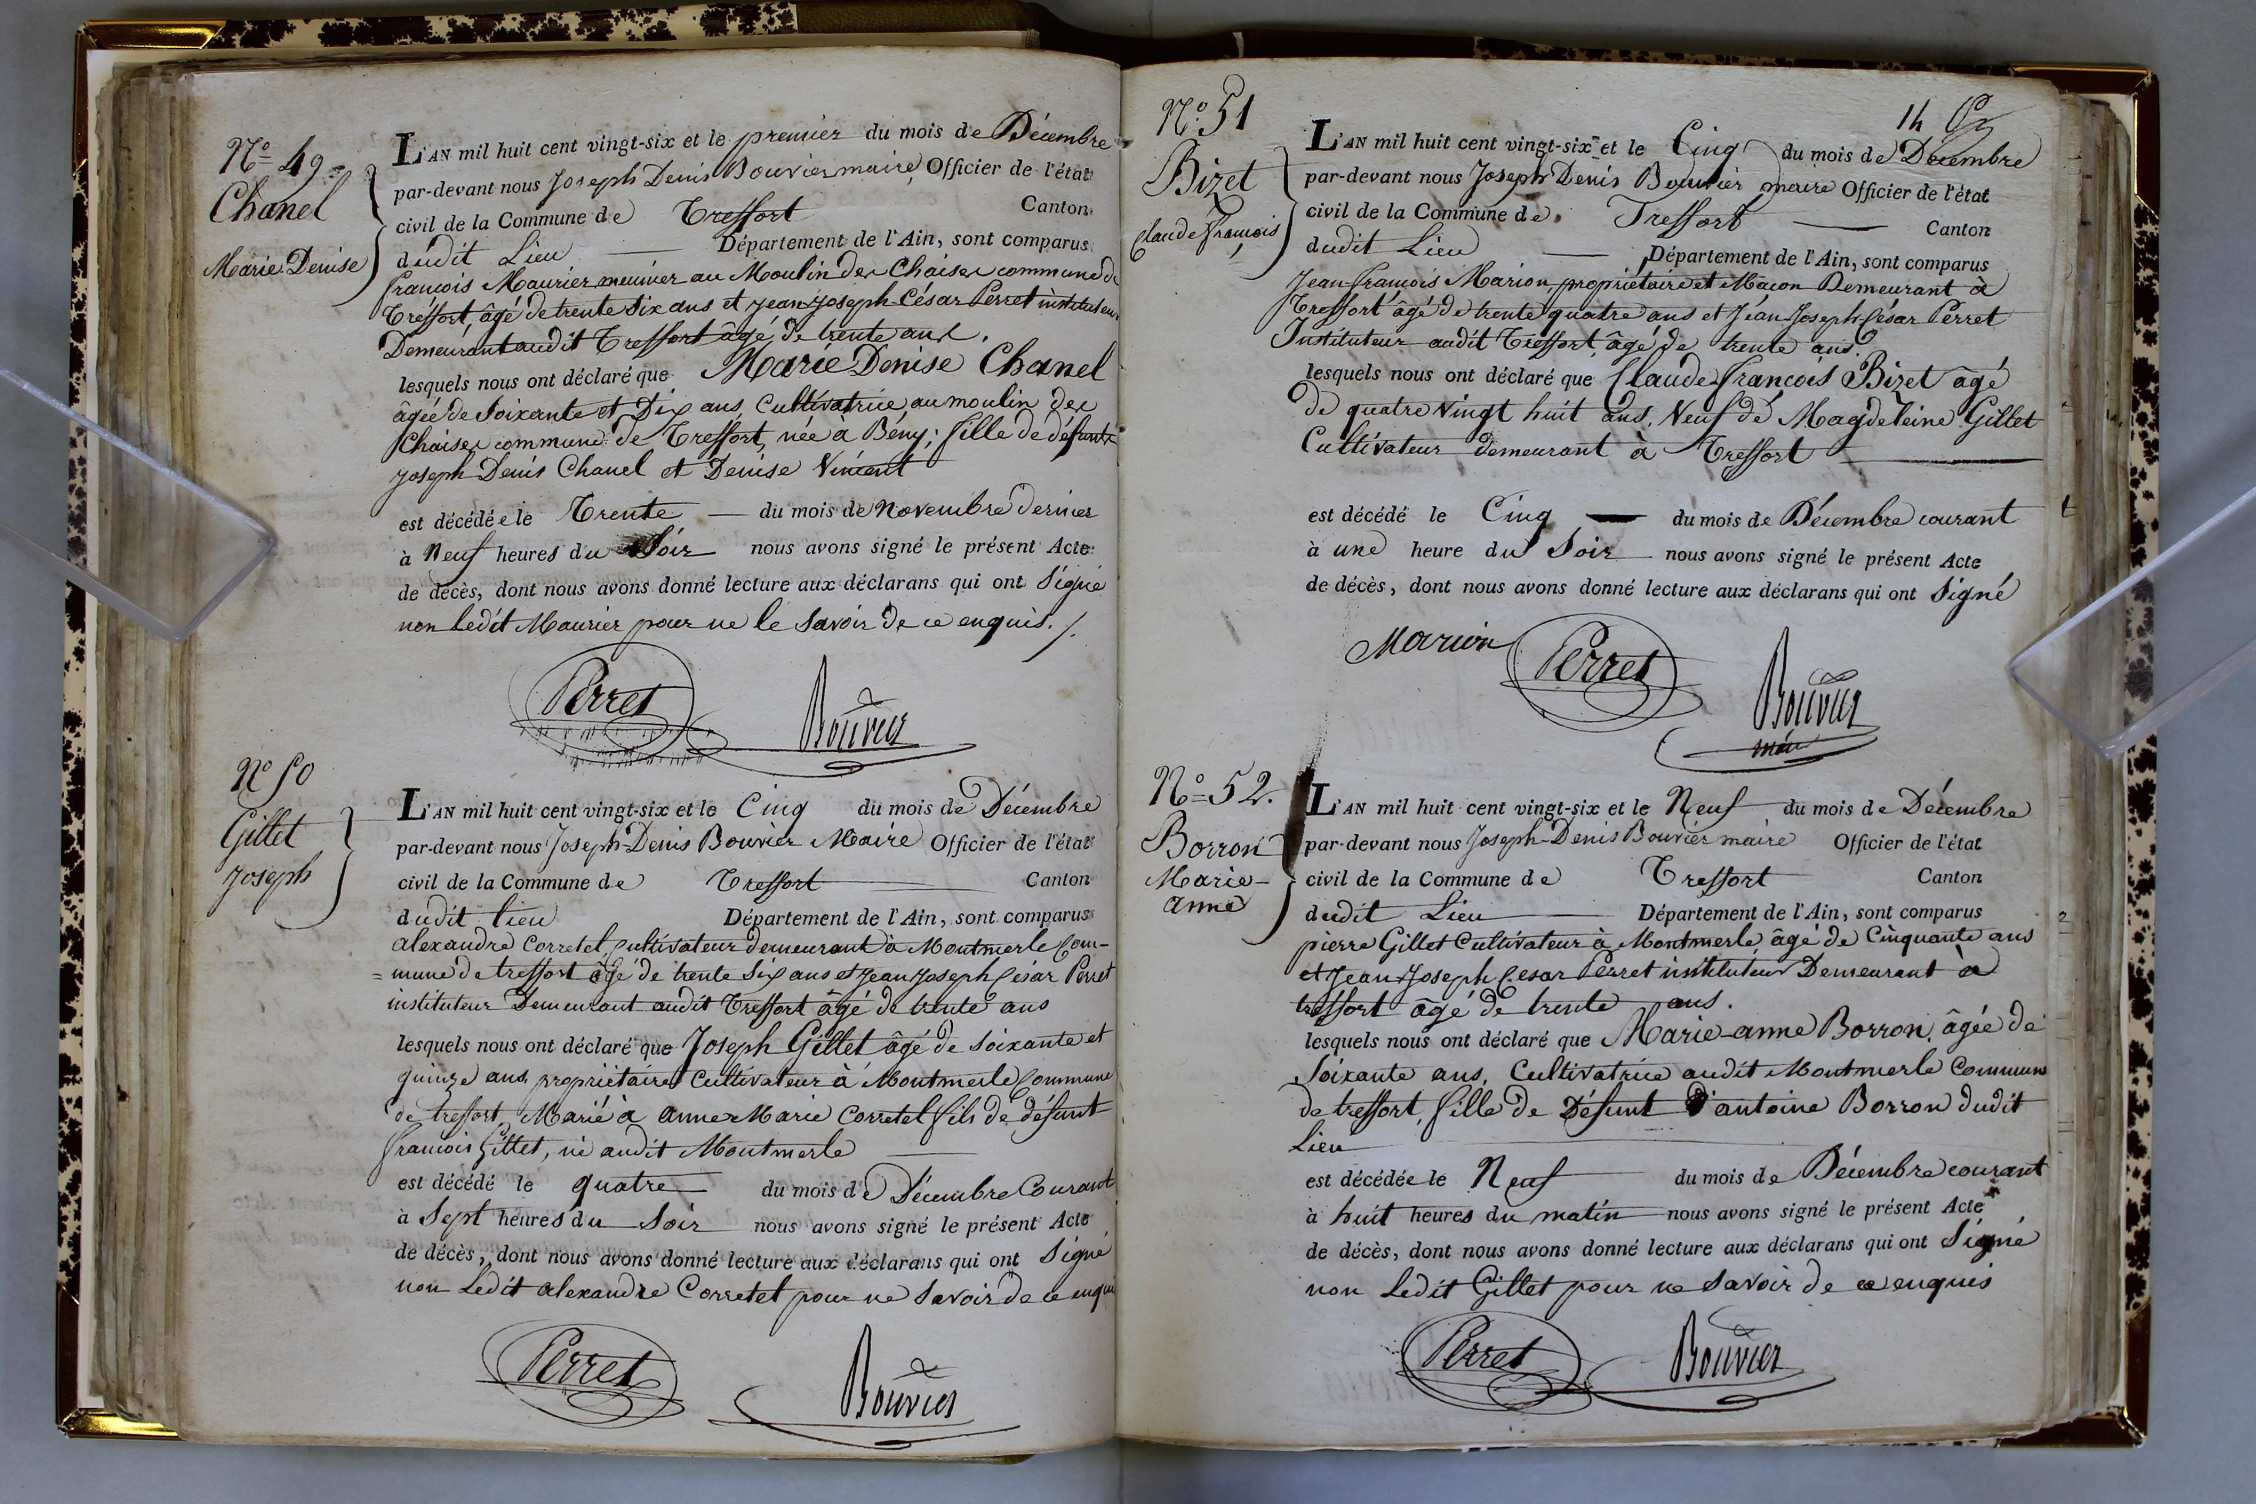 N.o 49
Chanel
Marie Denise
L'AN mil huit cent vingt-six et le premier du mois de Décembre
par-devant nous Joseph Denis Bouvier maire, Officier de l'état
civil de la Commune de Treffort Canton
dudit Lieu Département de l'Ain, sont comparus
françois Maurier meunier au Moulin des Chaises commune de
Tréffort, âgé de trente six ans et jean-joseph-César Perret instituteur
Demeurant audit Treffort âgé de trente ans.
lesquels nous ont déclaré que Marie Denise Chanel
âgée de Soixante et Dix ans, Cultivatrice au moulin des
Chaises commune de Treffort, née à Bény; fille de défunts
joseph Denis Chanel et Denise Vincent
est décédée le Trente du mois de Novembre dernier
à Neuf heures du Soir nous avons signé le présent Acte
de décès, dont nous avons donné lecture aux déclarans qui ont Signé
non Ledit Maurier pour ne le Savoir de ce enquis./.
Perret
Bouvier
N.o 50
Gillet
joseph
L'AN mil huit cent vingt-six et le Cinq du mois de Décembre
par-devant nous Joseph-Denis Bouvier Maire Officier de l'état
civil de la Commune de Treffort Canton
dudit lieu Département de l'Ain, sont comparus
alexandre Corretel, Cultivateur demeurant à Montmerle Com-
= mune de treffort âgé de trente Six ans et Jean Joseph César Perret
instituteur Demeurant audit Treffort âgé de trente ans
lesquels nous ont déclaré que Joseph Gillet âgé de Soixante et
quinze ans, propriétaire Cultivateur à Montmerle Commune
de treffort, Marié à anne Marie Corretel fils de défunt
françois Gillet, né audit Montmerle
est décédé le quatre du mois de Décembre Courant
à Sept heures du Soir nous avons signé le présent Acte
de décès, dont nous avons donné lecture aux déclarans qui ont Signé
non Ledit alexandre Corretel pour ne Savoir de ce enquis
Perret
Bouvier
14
N.o 51
Bizet
Claude françois
L'AN mil huit cent vingt-six et le Cinq du mois de Décembre
par-devant nous Joseph Denis Bouvier maire Officier de l'état
civil de la Commune de Treffort Canton
dudit Lieu Département de l'Ain, sont comparus
Jean-françois Marion propriétaire et Maçon Demeurant à
Treffort âgé de trente quatre ans et Jean Joseph-César Perret
Instituteur audit Treffort, âgé de trente ans.
lesquels nous ont déclaré que Claude-françois Bizet âgé
de quatre vingt huit ans, Veuf de Magdeleine Gillet
Cultivateur demeurant à Treffort
est décédé le Cinq du mois de Décembre courant
à une heure du Soir nous avons signé le présent Acte
de décès, dont nous avons donné lecture aux déclarans qui ont Signé
Marion
Perret
Bouvier
N.o 52.
Borron
Marie-
anne
L'AN mil huit cent vingt-six et le Neuf du mois de Décembre
par-devant nous Joseph-Denis Bouvier maire Officier de l'état
civil de la Commune de Treffort Canton
dudit Lieu Département de l'Ain, sont comparus
pierre Gillet Cultivateur à Montmerle, âgé de Cinquante ans
et Jean-Joseph Cesar Perret instituteur Demeurant à
treffort âgé de trente ans.
lesquels nous ont déclaré que Marie-anne Borron, âgée de
Soixante ans, Cultivatrice audit Montmerle Commune
de treffort, fille de Défunt D'antoine Borron dudit
Lieu
est décédée le Neuf du mois de Décembre courant
à huit heures du matin nous avons signé le présent Acte
de décès, dont nous avons donné lecture aux déclarans qui ont Signé
non Ledit Gillet pour ne Savoir de ce enquis
Perret
Bouvier